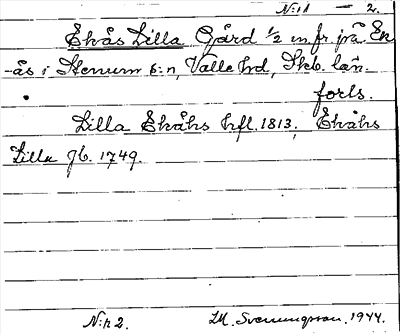 N:r 1 — 2.
Ekås Lilla Gård 1/2 m. fr. på En
-ås i Stenum s:n, Valle hd, Skb. län.
forts.
Lilla Ekåhs hfl. 1813, Ekåhs
Lilla Jb. 1749.
N:r 2. M. Svenungsson. 1944.